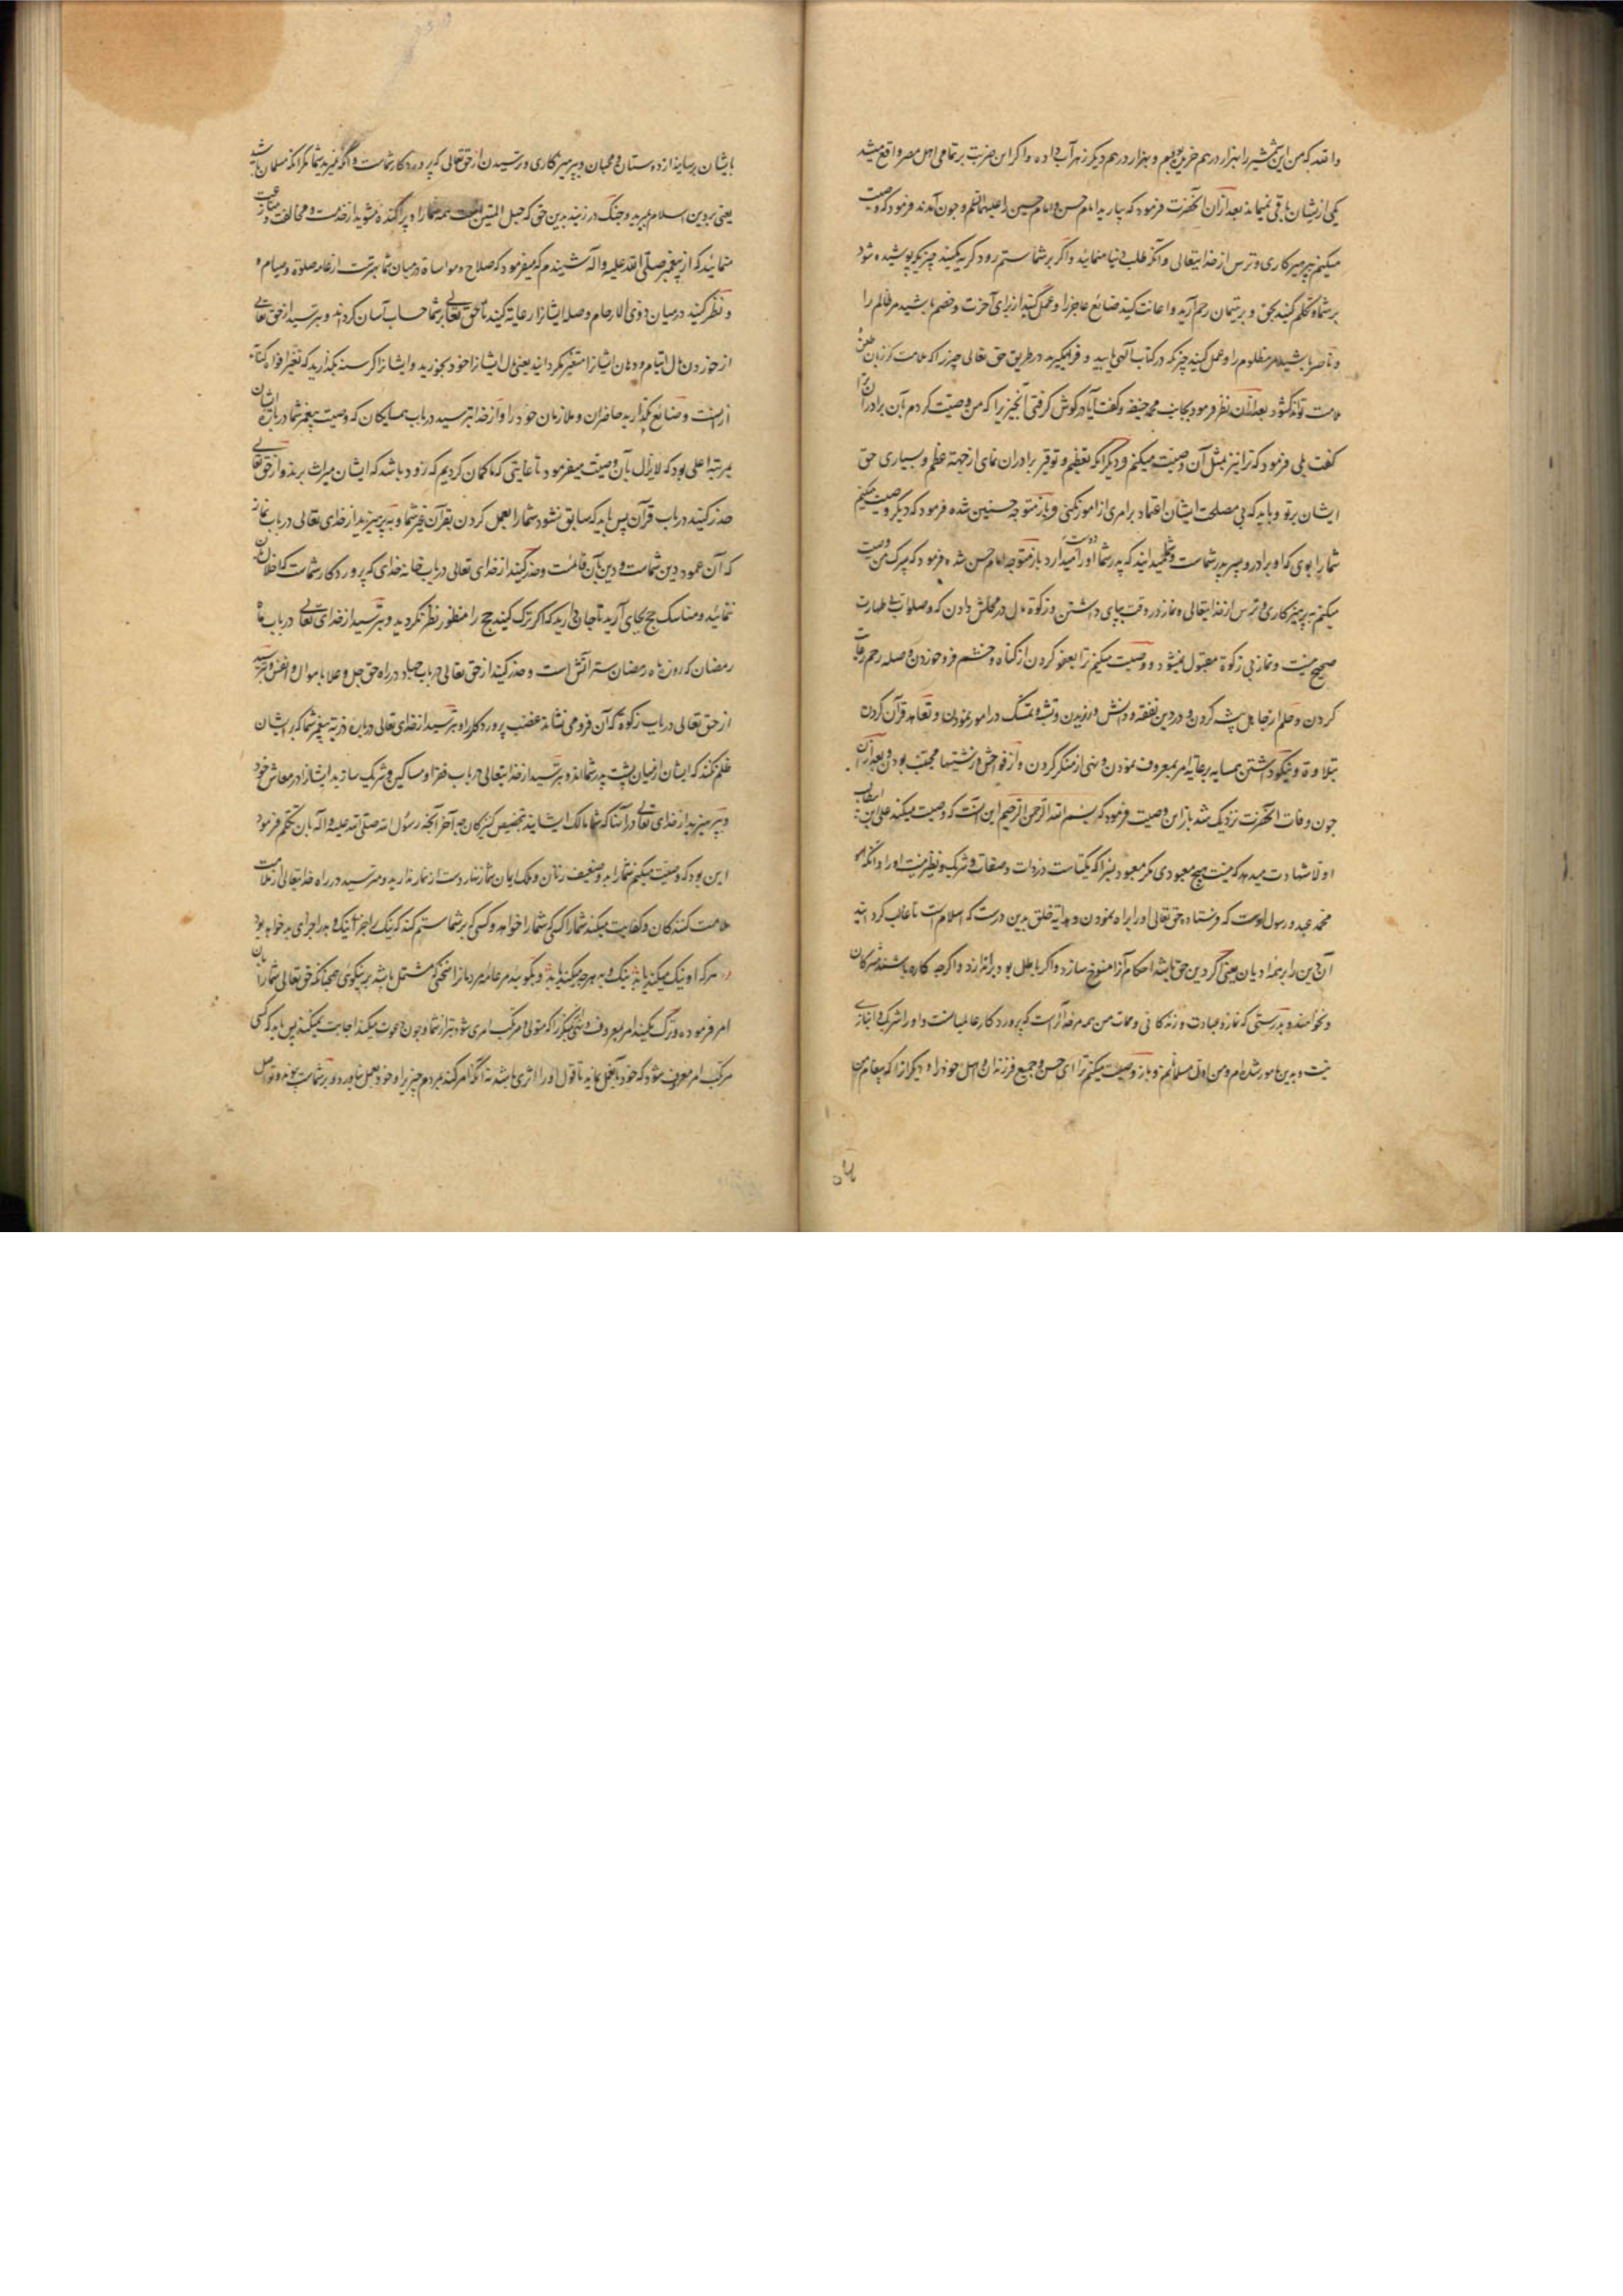 والله که من این شمشیر را بهزار درهم خریده‌ام و بهزار درهم دیگر زهر آب داده و اگر این ضربت بر تمامی اهل مصر واقع میشد
یکی ازیشان باقی نمیماند بعد ازان آنحضرت فرمود که بیارید امام حسن و امام حسین را علیهما السلم و چون آمدند فرمود که وصیت
میکنم بپرهیزکاری و ترس از خدایتعالی و آنکه طلب دنیا منمائید و اگر بر شما ستم رود گریه مکنید چیزیکه پوشیده شود
بر شما و تکلم کنید بحق و بر یتیمان رحم آرید و اعانت کنید ضائع عاجز را و عمل کنید از برای آخرت و خصم باشید مر ظالم را
و ناصر باشید مر مظلوم را و عمل کنید چیزیکه در کتاب الهی یابید و فرا مگیرید در طریق حق تعالی چیزیرا که ملامت کر زبان طعن
ملامت تواند گشود بعد ازان نظر فرمود بجانب محمد حنیفه و گفت آیا در گوش گرفتی آنچیزیرا که من وصیت کردم بآن برادران ترا
گفت بلی فرمود که ترا نیز بمثل آن وصیت میکنم و دیگر آنکه تعظیم و توقیر برادران نمای از جهته عظم و بسیاری حق
ایشان برتو و باید که بی مصلحت ایشان اعتماد بر امری از امور نکنی و باز متوجه حسنین شده فرمود که دیگر وصیت میکنم
شما را بوی که او برادر و پسر پدر شماست و میدانید که پدر شما او را دوست میدارد باز متوجه امام حسن شده فرمود که پسرک من وصیت
میکنم بپرهیزکاری و ترس از خدایتعالی و نماز در وقت بجای داشتن و زکوة مال در محلش دادن که وصلوات بی طهارت
صحیح نیست و نماز بی زکوة مقبول نمیشود و وصیت میکنم ترا بعفو کردن از گناه و خشم فرو خوردن و صله رحم رعایت
کردن و حلم از جاهل پیشه کردن و در دین تفقه و دانش ورزیدن و تثبت و تمسک در امور نمودن و تعاهد قرآن کردن
بتلاوة و نیکو داشتن همسایه برعایة امر بمعروف نمودن و نهی از منکر کردن و از فواحش و زشتیها مجتنب بودن و بعد ازان
چون وفات آنحضرت نزدیک شد باز این وصیت فرمود که بسم الله الرحمن الرحیم این است که وصیت میکند علی ابن ابیطالب
اولا شهادت میدهد که نیست هیچ معبودی مگر معبود بسزا که یکتاست در ذات و صفات و شریک و نظیر نیست او را و آنکه او
محمد عبد و رسول اوست که فرستاده حق تعالی او را براه نمودن و هدایة خلق بدین درست که اسلام است تا غالب گرداند
آن دین را بر همه ادیان یعنی اگر دین حق باشد احکام آنرا منسوخ سازد و اگر باطل بود براندازد و اگرچه کاره باشند مشرکان
و نخواهند و بدرستی که نماز و عبادت و زندگانی و ممات من همه مر خدایراست که پروردگار عالمیانست و او را شریک و انبازی
نیست و بدین مامور شده‌ام و من اول مسلمانم و باز وصیت میکنم ترا ای حسن و جمیع فرزندان و اهل خود را و دیگر آنرا که پیغام من
بایشان برساند از دوستان و محبان و بپرهیزکاری و ترسیدن از حق تعالی که پروردگار شماست و آنکه نمیرید شما مگر آنکه مسلمان باشید
یعنی بر دین اسلام بمیرید و چنگ در زنید بدین حق که حبل المتین است همه شما را و پراکنده مشوید از خدمت و مخالفت
منمائید که از پیغمبر صلی الله علیه و آله شنیدم که میفرمود که صلاح و مواساة در میان شما بهترست از عامه صلوة و صیام و
و نظر کنید در میان ذوی الارحام و صله ایشانرا رعایة کنید تا حق تعالی بر شما حساب آسان گرداند و بترسید از حق تعالی
از خوردن مال ایتام و دهان ایشانرا متغیر مگردانید یعنی مال ایشانرا خود بخورید و ایشانرا گرسنه بگذارید که تغیر افواه کنایه
ازانست و ضائع مگذارید حاضران و ملازمان خود را و از خدا بترسید در باب همسایگان که وصیت پیغمبر شما درباره ایشان
بمرتبه اعلی بود که لایزال بآن وصیت میفرمود تا غایتی که ما گمان کردیم که زود باشد که ایشان میراث برند و از حق تعالی
حذر کنید در باب قرآن پس باید که سابق نشود شما را بعمل کردن بقرآن غیر شما و بپرهیزید از خدای تعالی در باب نماز
که آن عمود دین شماست و دین بآن قائمست و حذر کنید از خدای تعالی در باب خانه خدای که پروردگار شماست که اخلا ازان
ننمائید و مناسک حج بجای آرید تا جان دارید که اگر ترک کنید حج را منظور نظر نگردید و بترسید از خدای تعالی در باب ماه
رمضان که روزه ماه رمضان ستر آتش است و حذر کنید از حق تعالی در باب جهاد در راه حق جل و علا باموال و انفس و بترسید
از حق تعالی در باب زکوة که آن فرو می‌نشاند غضب پروردگار را و بترسید از خدای تعالی درباره ذریة پیغمبر شما که بر ایشان
ظلم نکنند که ایشان از میان پشت پدر شمااند و بترسید از خدایتعالی در باب فقرا و مساکین و شریک سازید ایشانرا در معاش خود
و بپرهیزید از خدای تعالی در آنها که شما مالک ایشانید بتخصیص کنیزکان چه آخر آنچه رسول الله صلی الله علیه و آله بآن تکلم فرمود
این بود که وصیت میکنم شما را بدو ضعیف زنان و ملک یمان شما زنهار دست از نماز ندارید و مترسید در راه خدایتعالی از ملامت
ملامت کنندگان و کفایت میکند شما را کسی که شما را خواهد و کسی که بر شما ستم کند که نیک را جزا نیک و بد را جزای بد خواهد بود
هرکه او نیک میکند یابد نیک و بد هرچه میکند یابد و بگوئید مر عامه مردمانرا سخنی که مشتمل باشد بر نیکوئی همچنانکه حق تعالی شما را بان
امر فرموده و ترک مکنید امر بمعروف و نهی منکر را که متولی و مرتکب امری شود بتر از شما و چون دعوت میکنند اجابت نمیکنند پس باید که کسی
مرتکب امر معروف شود که خود بآن عمل نماید تا قول او را اثری باشد نه آنکه امر کند بمردم چیزیرا و خود بعمل نیاورد و بر شماست پیوند و تواصل